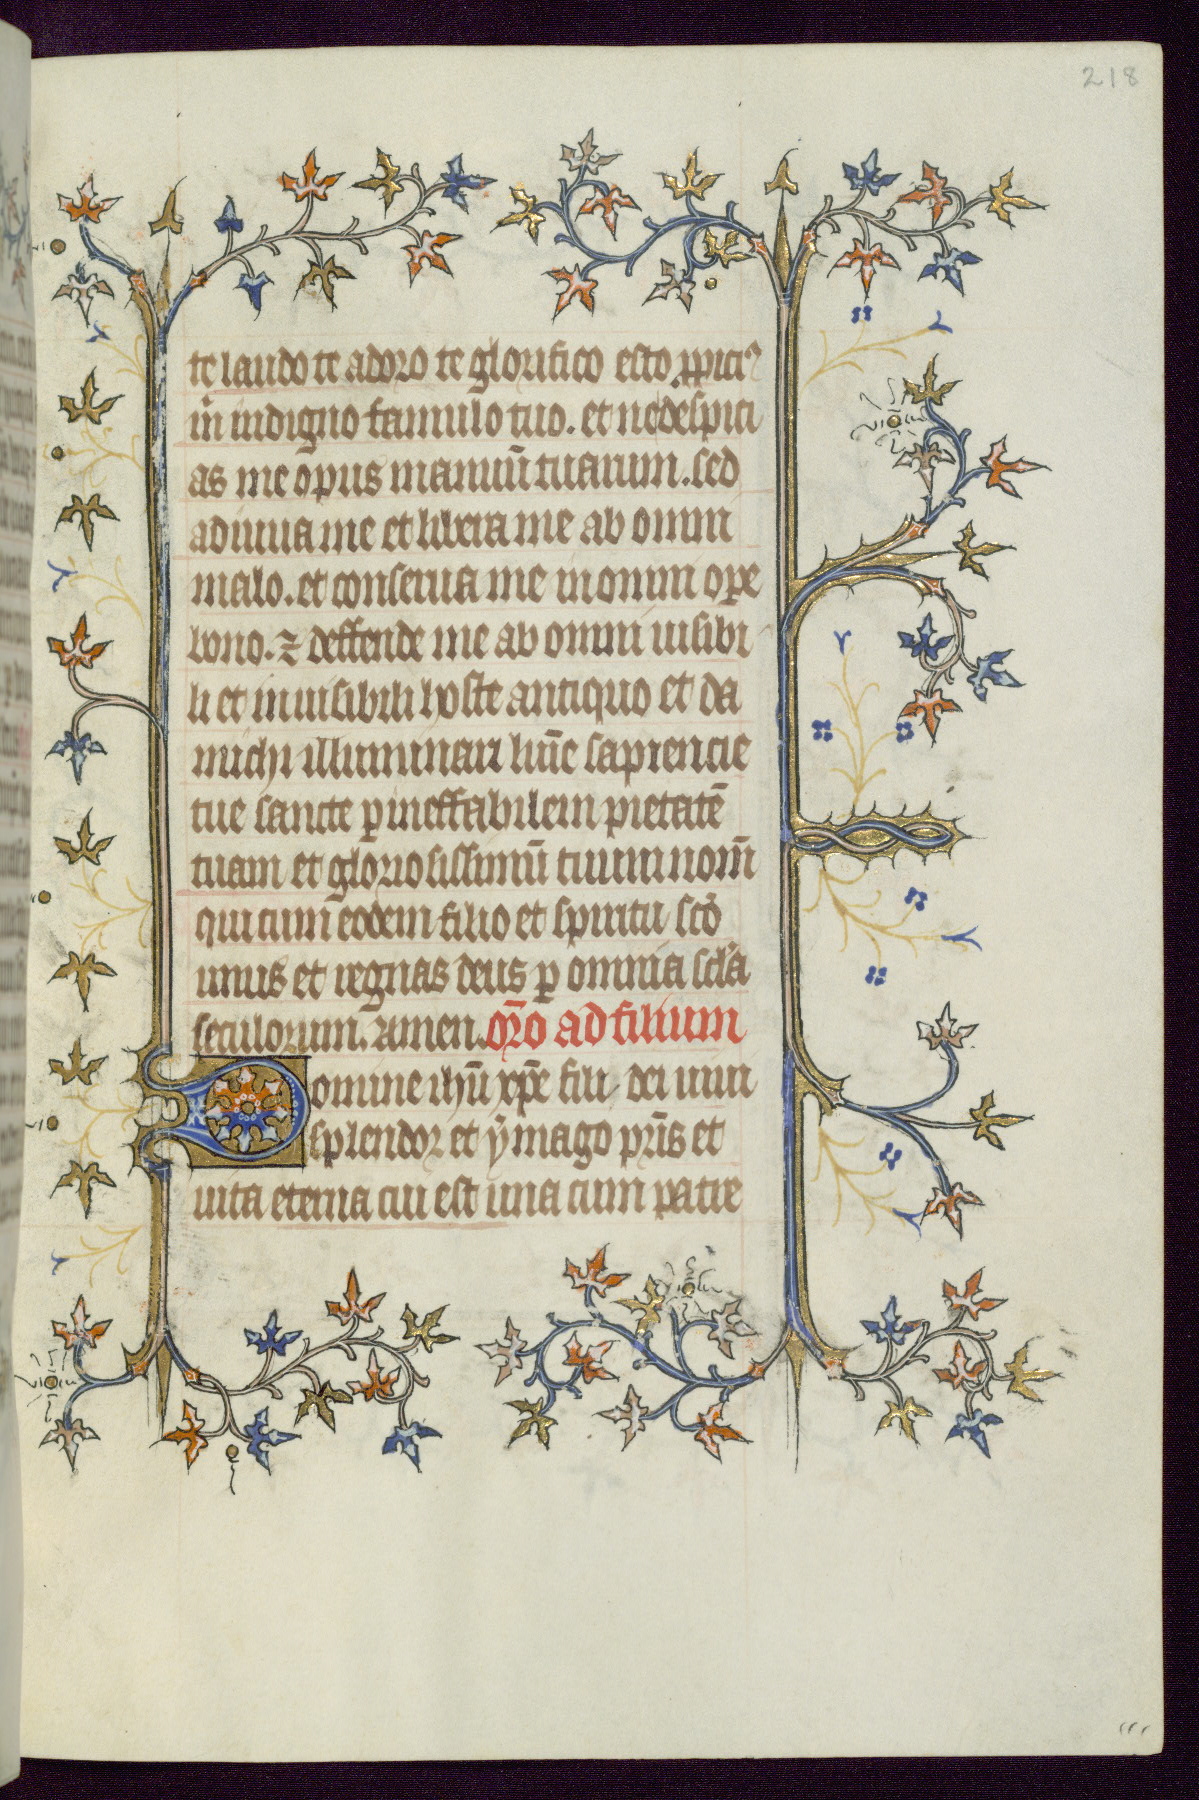 218
te laudo te adoro te glorifico esto ꝓpiciꝰ
m̄ indigno famulo tuo. et ne despici
as me op̄us manuū tuarum. sed
adiuua me et libera me ab omni
malo. et conserua me in omni oꝑe
bono. ⁊ deffende me ab omni uisibi
li et inuisibili hoste antiquo et da
michi illuminari lum̄e sapiencie
tue sancte ꝑ ineffabilem pietatē
tuam et gloriosissimū tuum nom̄
qui cum eodem filio et spiritu scō
unus et regnas deus ꝑ omnia scl̄a
seculorum. amen. or̄o ad filium
Domine ihū xp̄e fili dei uiui
splendor et ymago pr̄is et
uita eterna cui est una cum patre